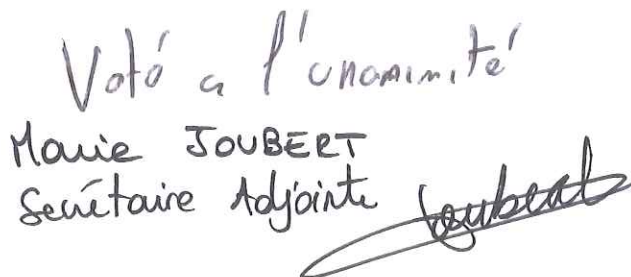 Voté a l'unanimité
Marie JOUBERT
Secrétaire Adjointe
Joubert